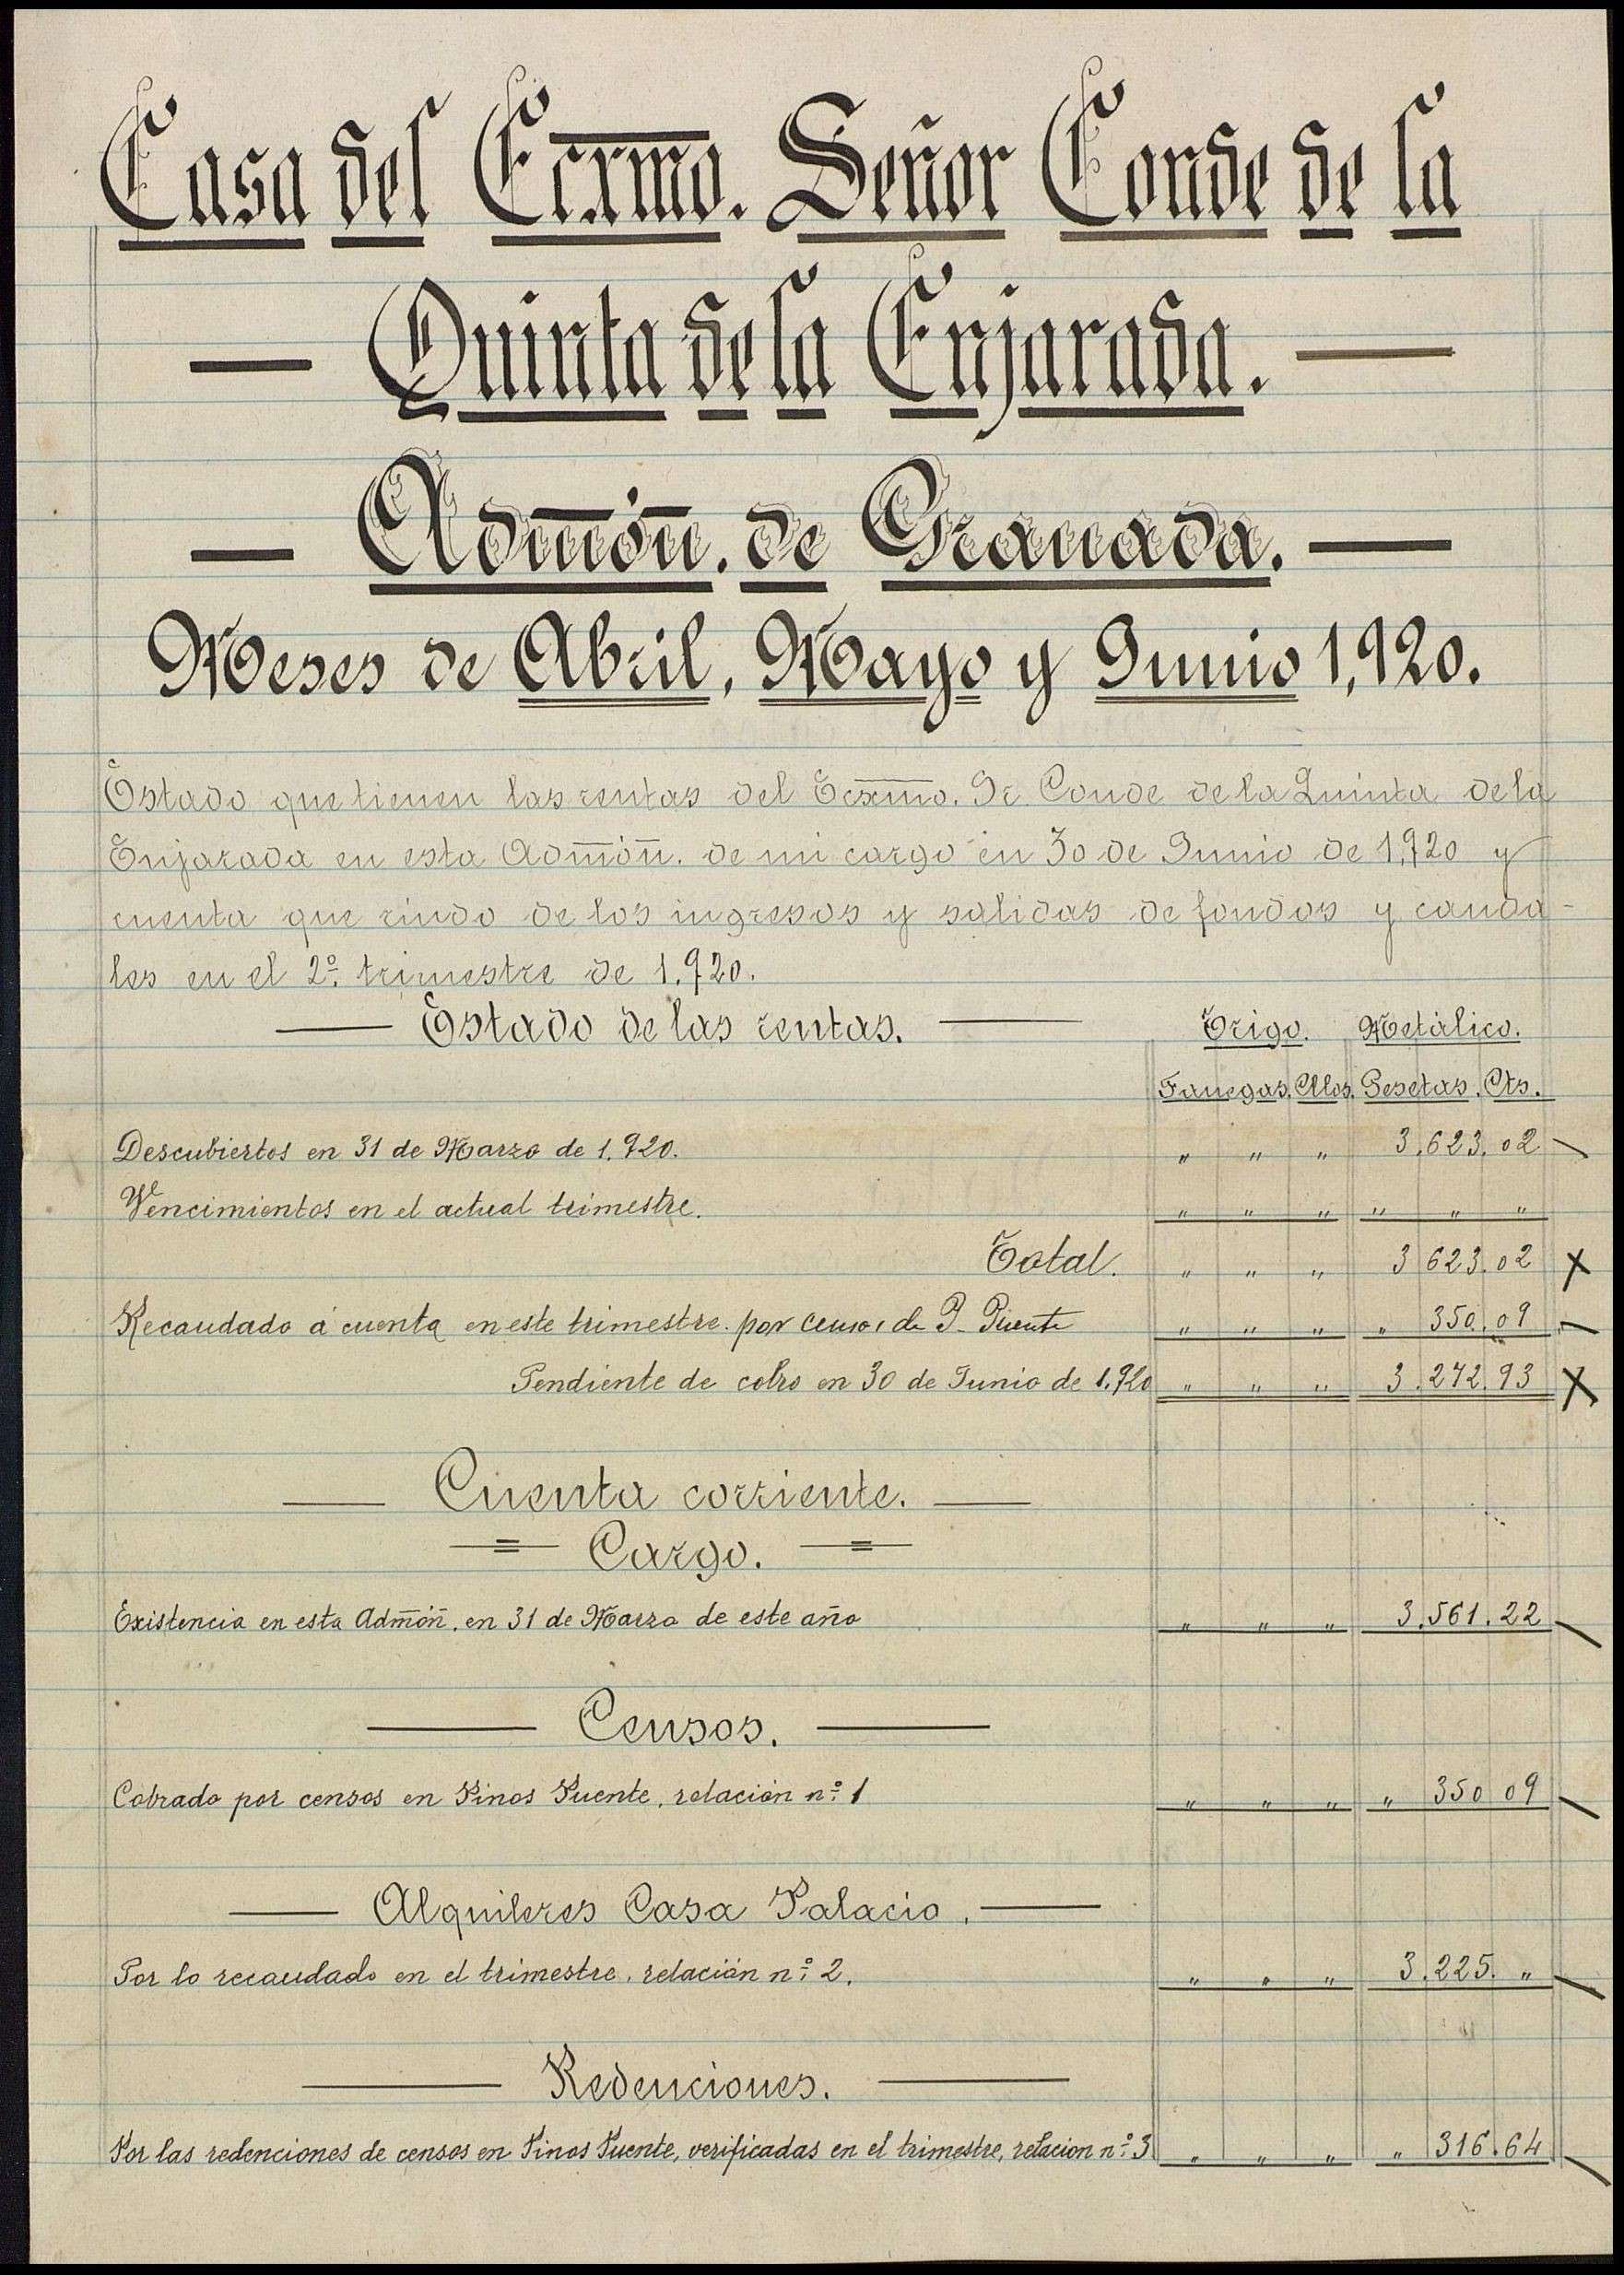 Casa del Ecxmo. Señor Conde de la
— Quinta de la Enjarada. —
— Admón. de Granada. —
Meses de Abril, Mayo y Junio 1,920.
Estado que tienen las rentas del Ecxmo. Sr. Conde de la Quinta de la
Enjarada en esta Admón. de mi cargo en 30 de Junio de 1,920 y
cuenta que rindo de los ingresos y salidas de fondos y cauda-
les en el 2º trimestre de 1.920.
— Estado de las rentas. — Trigo. Metálico.
Fanegas. Cllos. Pesetas. Cts.
Descubiertos en 31 de Marzo de 1.920. " " " 3.623.02
Vencimientos en el actual trimestre. " " " " " "
Total. " " " 3 623.02
Recaudado á cuenta en este trimestre. por censos de P. Puente " " " " 350.09
Pendiente de cobro en 30 de Junio de 1.920 " " " 3.272.93
— Cuenta corriente. —
= Cargo. =
Existencia en esta Admón. en 31 de Marzo de este año " " " 3.561.22
— Censos. —
Cobrado por censos en Pinos Puente, relación nº 1 " " " " 350 09
— Alquileres Casa Palacio. —
Por lo recaudado en el trimestre, relación nº 2. " " " 3.225. "
— Redenciones. —
Por las redenciones de censos en Pinos Puente, verificadas en el trimestre, relacion nº 3 " " " " 316.64